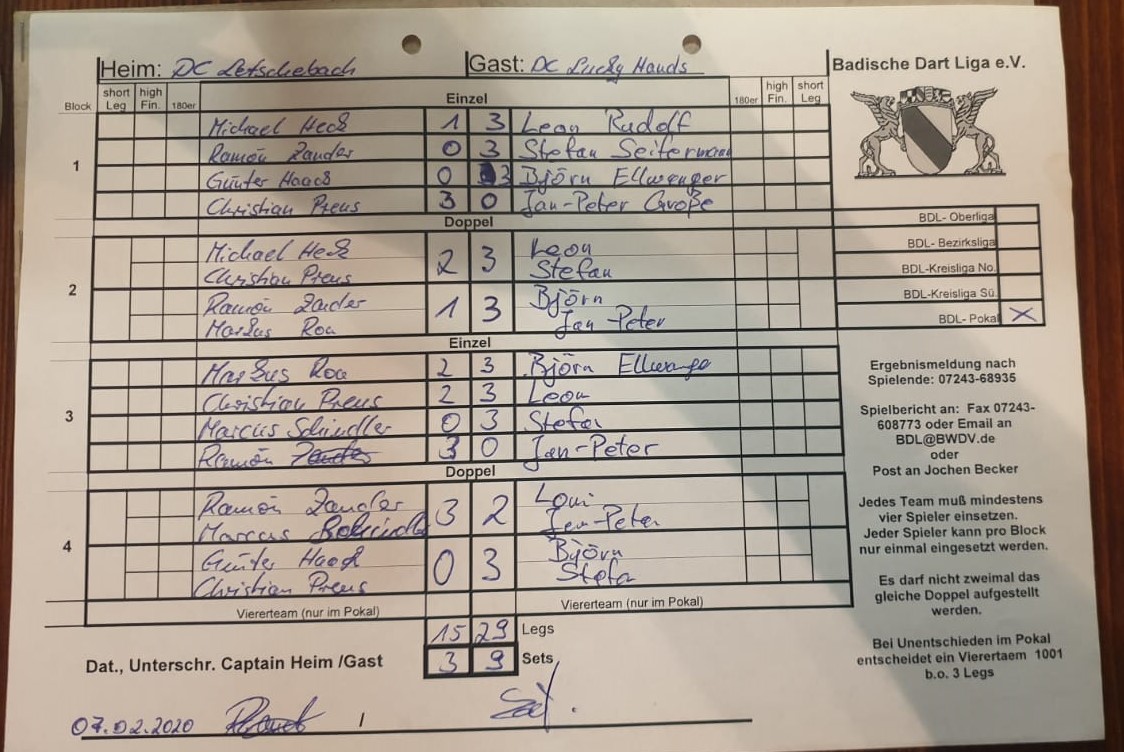 Heim: DC Letschebach Gast: DC Lucky Hands Badische Dart Liga e.V.
Block short Leg high Fin. 180er Einzel 180er high Fin. short Leg
1
Michael Heck 1 3 Leon Rudolf
Ramón Zander 0 3 Stefan Seitermann
Günter Haack 0 3 Björn Ellwanger
Christian Preus 3 0 Jan-Peter Große
Doppel
2
Michael Heck 2 3 Leon
Christian Preus Stefan
Ramón Zander 1 3 Björn
Markus Roa Jan-Peter
Einzel
3
Markus Roa 2 3 Björn Ellwange
Christian Preus 2 3 Leon
Marcus Schindler 0 3 Stefan
Ramón Zander 3 0 Jan-Peter
Doppel
4
Ramón Zander 3 2
Marcus Jan-Peter
Günter Haack 0 3 Björn
Christian Preus Stefa
Viererteam (nur im Pokal) Viererteam (nur im Pokal)
15 29 Legs
3 9 Sets
Dat., Unterschr. Captain Heim /Gast
07.02.2020 /
BDL- Oberliga
BDL- Bezirksliga
BDL-Kreisliga No.
BDL-Kreisliga Sü.
BDL- Pokal X
Ergebnismeldung nach
Spielende: 07243-68935
Spielbericht an: Fax 07243-
608773 oder Email an
BDL@BWDV.de
oder
Post an Jochen Becker
Jedes Team muß mindestens
vier Spieler einsetzen.
Jeder Spieler kann pro Block
nur einmal eingesetzt werden.
Es darf nicht zweimal das
gleiche Doppel aufgestellt
werden.
Bei Unentschieden im Pokal
entscheidet ein Vierertaem 1001
b.o. 3 Legs